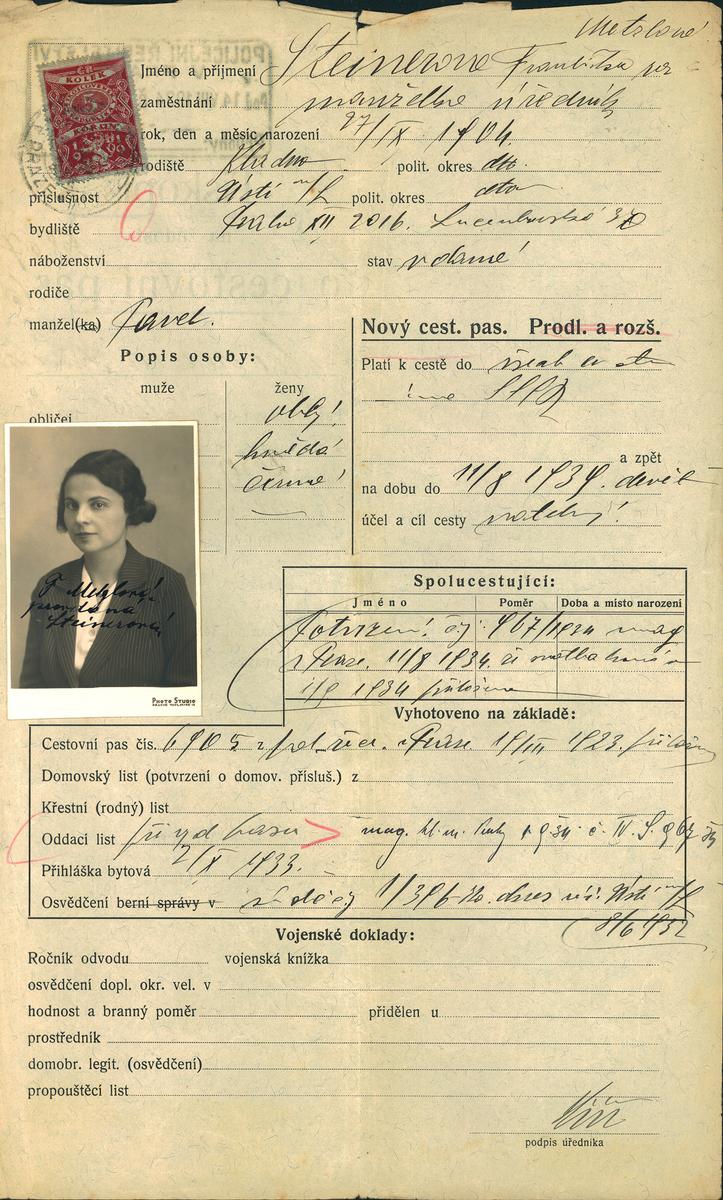 Metzlová
KOLEK
5
KORUN
Jméno a příjmení Steinerová Františka roz
zaměstnání manželka úředníka
rok, den a měsíc narození 27/IX 1904.
rodiště Kladno polit. okres dtto
příslušnost Ústí n/L polit. okres dtto
bydliště Praha XII 2016. Lucemburská
náboženství stav vdaná
rodiče
manžel(ka) Pavel.
Nový cest. pas. Prodl. a rozš.
Popis osoby:
Platí k cestě do
muže ženy
obličej oblý
hnědá
černé
a zpět
na dobu do 11/8 1939.
účel a cíl cesty
F Metzlová
provdaná
Steinerová
PHOTO STUDIO
Spolucestující:
Jméno Poměr Doba a místo narození
Potvrzení čj. 967/1934 mag
v Praze. 11/8 1934. že svatba koná se
1934 přiloženo
Vyhotoveno na základě:
Cestovní pas čís. 6905 z pol. řed. v Praze 1923.
Domovský list (potvrzení o domov. přísluš.) z
Křestní (rodný) list
Oddací list mag. hl. m. Prahy 1934 č. IV.
Přihláška bytová 2/X 1933.
Osvědčení berní správy v Ústí n/L
8/6 1932
Vojenské doklady:
Ročník odvodu vojenská knížka
osvědčení dopl. okr. vel. v
hodnost a branný poměr přidělen u
prostředník
domobr. legit. (osvědčení)
propouštěcí list
podpis úředníka